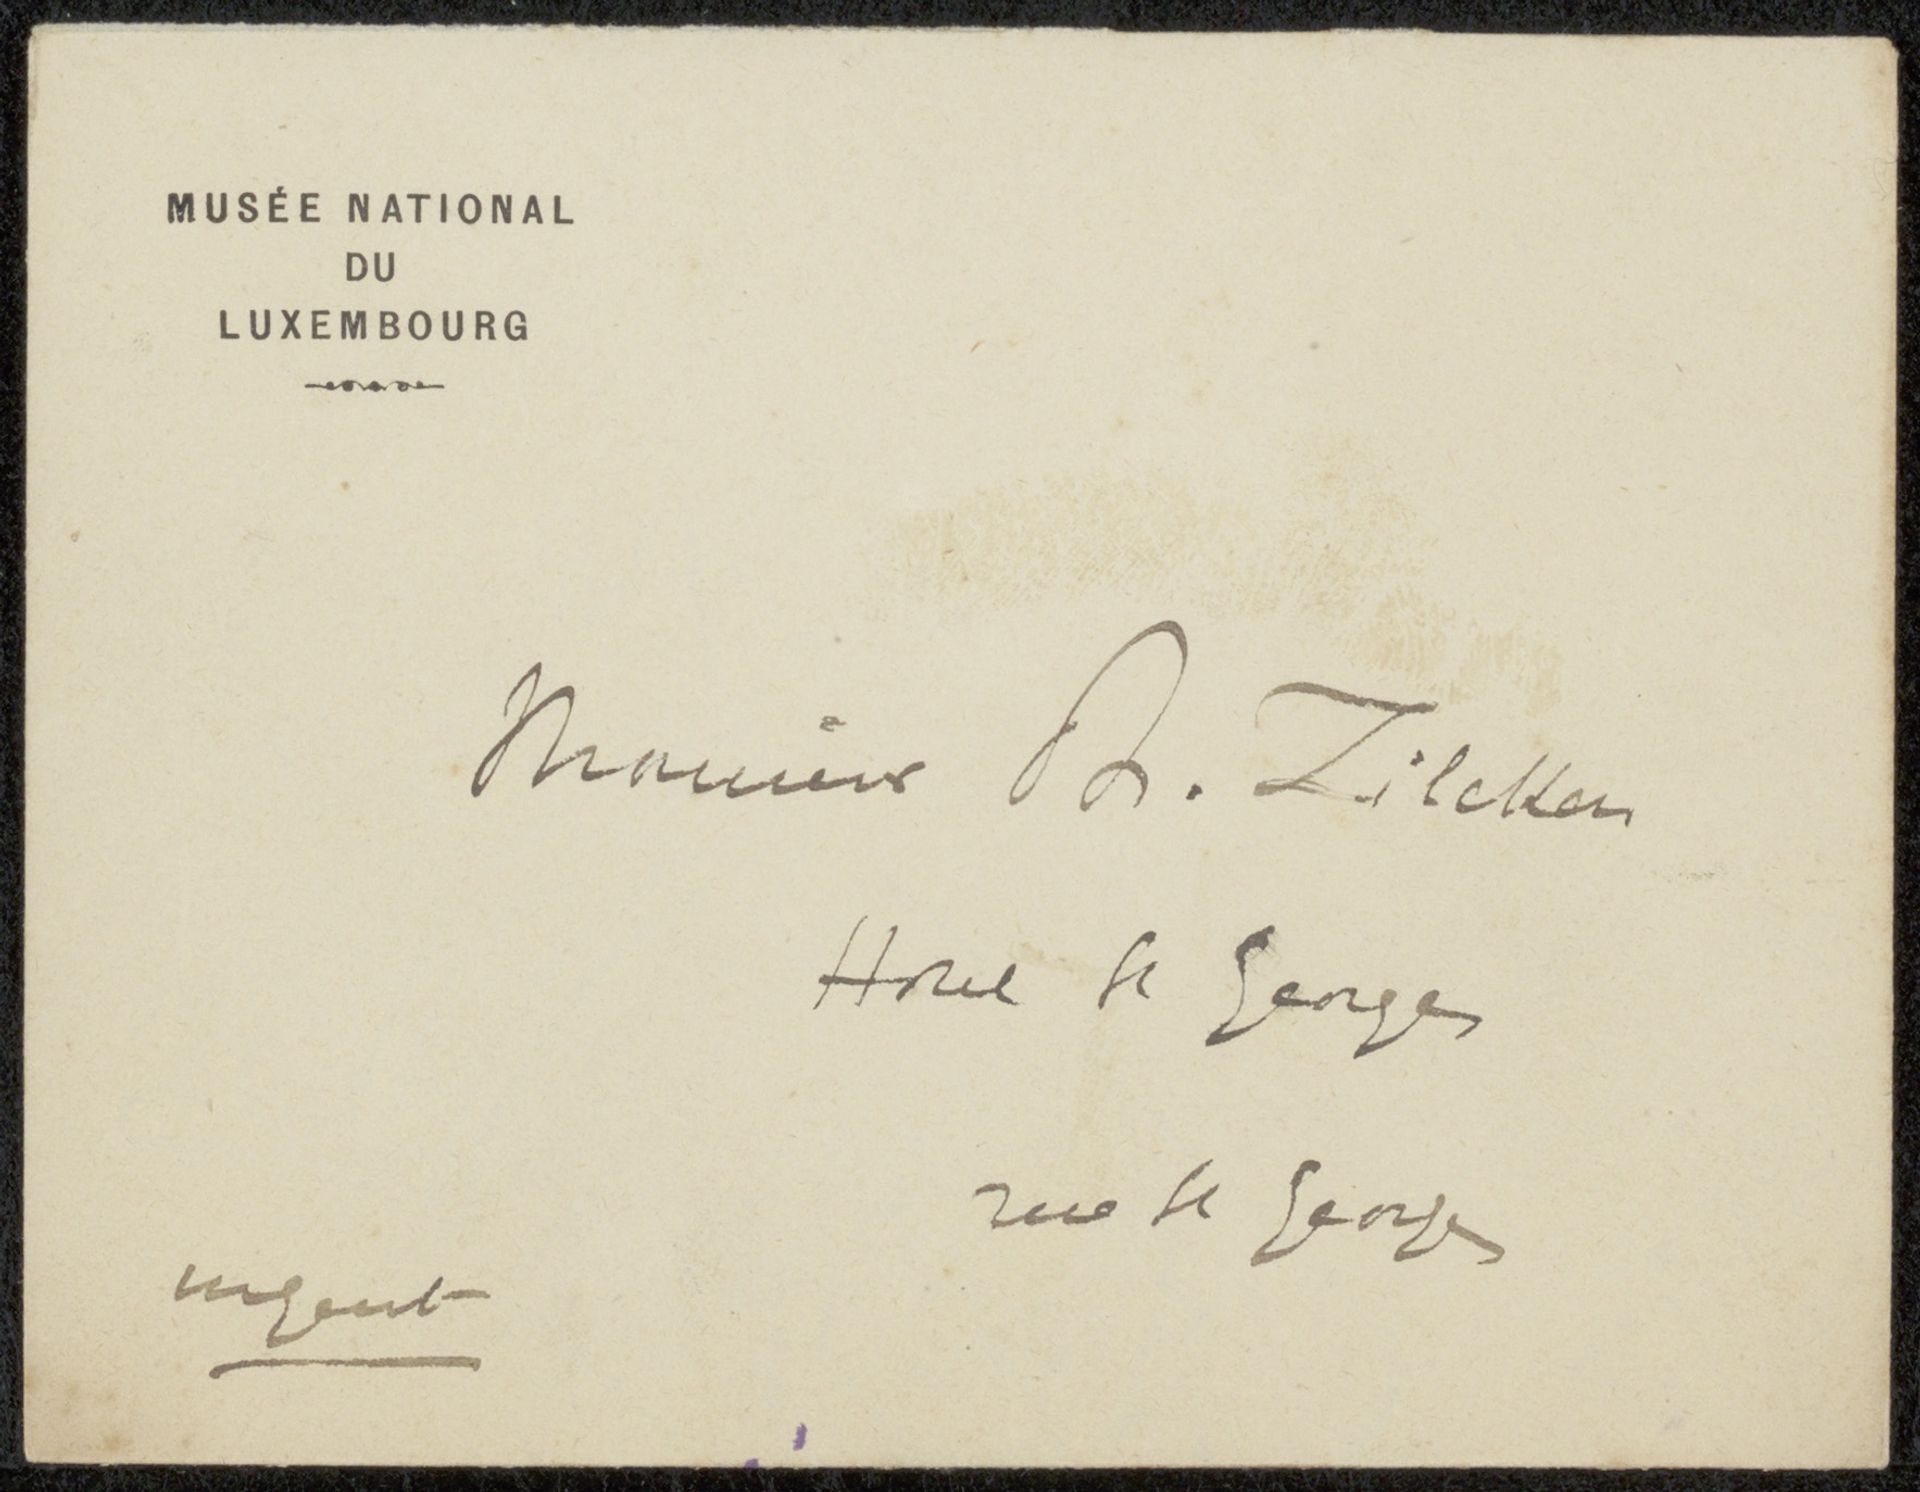 MUSÉE NATIONAL
DU
LUXEMBOURG
Monsieur Ph. Zilcken
Hotel St Georges
rue St Georges
urgent